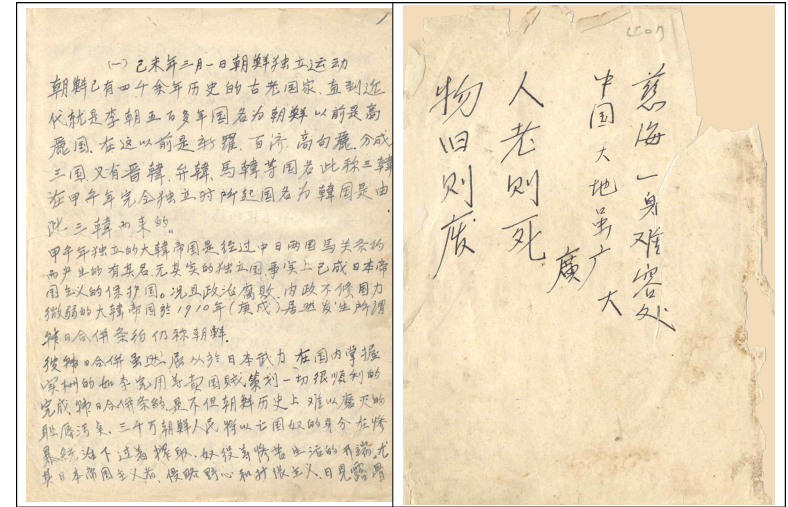 (一) 己未年三月一日朝鲜独立运动
朝鲜已有四千余年历史的古老国家，直到近
代就是李朝五百多年国名为朝鲜以前是高
麗国．在这以前是新羅、百济、高句麗、分成
三国．又有晋韓、弁韓、馬韓等国名此称三韓
在甲午年完全独立时所起国名为韓国是由
此三韓而来的。
甲午年独立的大韓帝国是经过中日两国馬关条约
而产生的有其名无其实的独立国，事实上已成日本帝
国主义的保护国。况且政治腐敗、内政不修国力
微弱的大韓帝国於1910年(庚戌)居然发生所谓
韩日合併条约仍称朝鲜．
韩日合併虽然屈从於日本武力 在国内掌握
的如李完用等賣国贼，策划一切很顺利的
完成韩日合併条约，是不但朝鲜历史上难以磨灭的
耻辱污臭、三千万朝鲜人民将以亡国奴的身分在惨
暴统治下过着榨取、奴役 惨苦生活的开端，尤
其日本帝国主义者、侵略野心和 主义、日見露骨
慈海一身难容处
中国大地虽广大
廣
人老则死
物旧则废